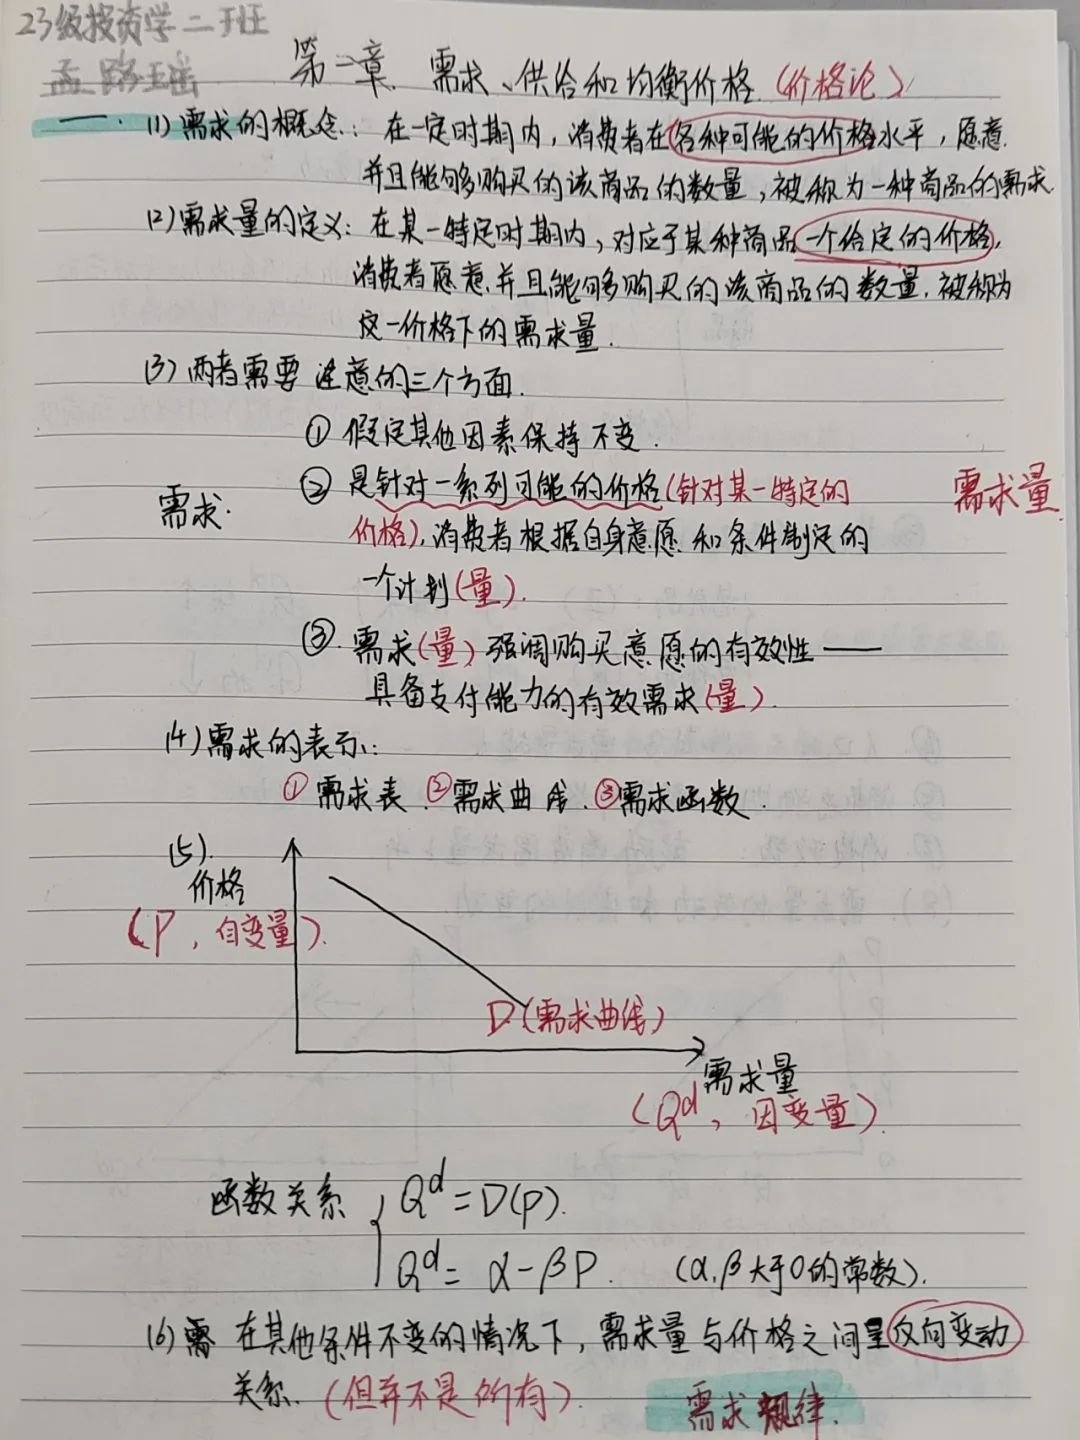 23级投资学二班
孟路瑶
第二章 需求、供给和均衡价格 (价格论)
一. (1) 需求的概念: 在一定时期内, 消费者在各种可能的价格水平, 愿意
并且能够购买的该商品的数量, 被称为一种商品的需求.
(2) 需求量的定义: 在某一特定时期内, 对应于某种商品一个给定的价格,
消费者愿意并且能够购买的该商品的数量, 被称为
这一价格下的需求量.
(3) 两者需要注意的三个方面.
① 假定其他因素保持不变.
② 是针对一系列可能的价格(针对某一特定的 需求量
需求. 价格), 消费者根据自身意愿和条件制定的
一个计划(量).
③. 需求(量)强调购买意愿的有效性——
具备支付能力的有效需求(量).
(4) 需求的表示:
① 需求表. ②需求曲线. ③需求函数.
(5).
价格
(P, 自变量).
D(需求曲线)
需求量
(Qᵈ, 因变量).
函数关系 { Qᵈ=D(P).
Qᵈ= α-βP. (α,β大于0的常数).
(6) 需 在其他条件不变的情况下, 需求量与价格之间呈反向变动
关系. (但并不是所有). 需求规律.